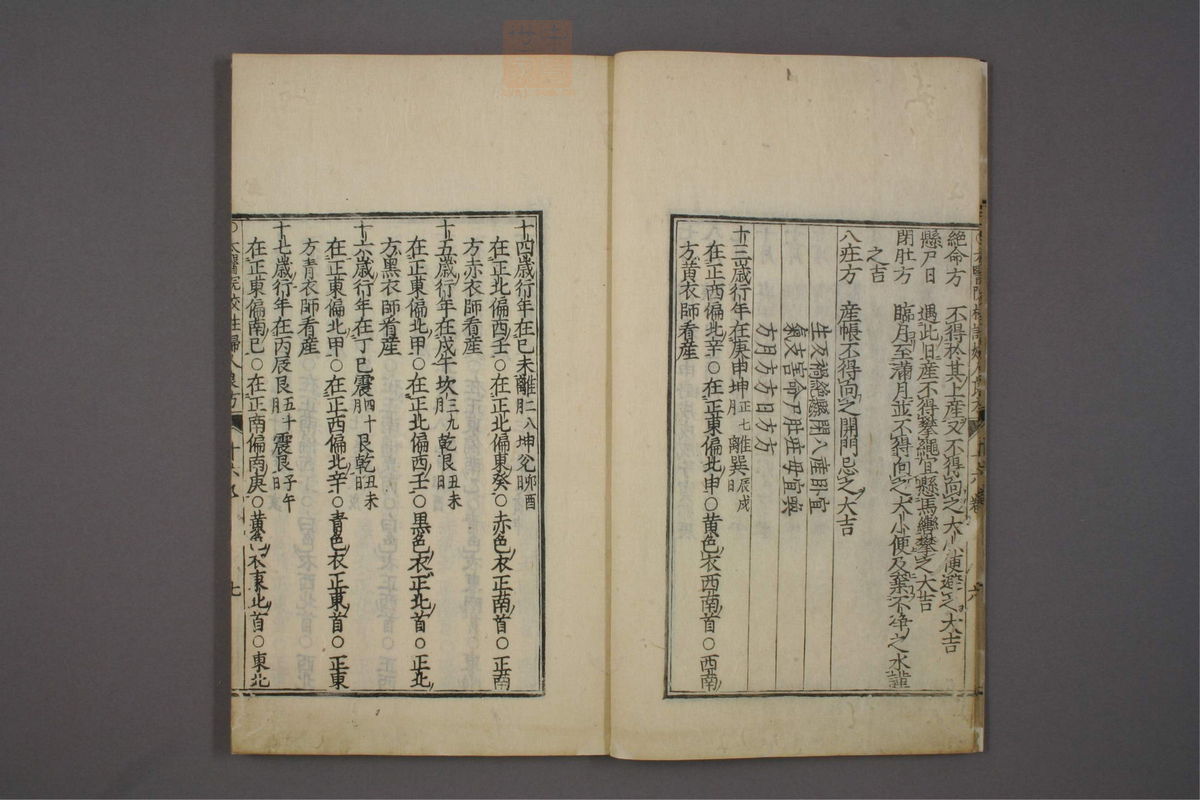 絶命方　不得於其上產又不得向之大小便避之大吉
懸尸日　遇此日產不得攀繩宜懸馬轡攀之大吉
閉肚方　臨月至滿月並不得向之大小便及棄不淨之水謹
之吉
八莊方　產帳不得向之開門忌之大吉
生反禍絶懸閉八產卧宜
氣支害命尸肚莊母宜與
方月方方日方方
十三歲行年在庚申坤正七月離巽辰戌日
在正西偏北辛○在正東偏北申○黃色衣西南首○西南
方黃衣師看產
六
十四歲行年在己未離二八月坤兊卯酉日
在正北偏西壬○在正北偏東癸○赤色衣正南首○正南
方赤衣師看產
十五歲行年在戊午坎三九月乾艮丑未日
在正東偏北甲○在正北偏西壬○黑色衣正北首○正北
方黑衣師看產
十六歲行年在丁巳震四十月艮乾丑未日
在正東偏北甲○在正西偏北辛○青色衣正東首○正東
方青衣師看產
十七歲行年在丙辰艮五十月震艮子午日
在正東偏南巳○在正南偏南庚○黃色衣東北首○東北
○太醫院校註婦人良方　十六卷　七